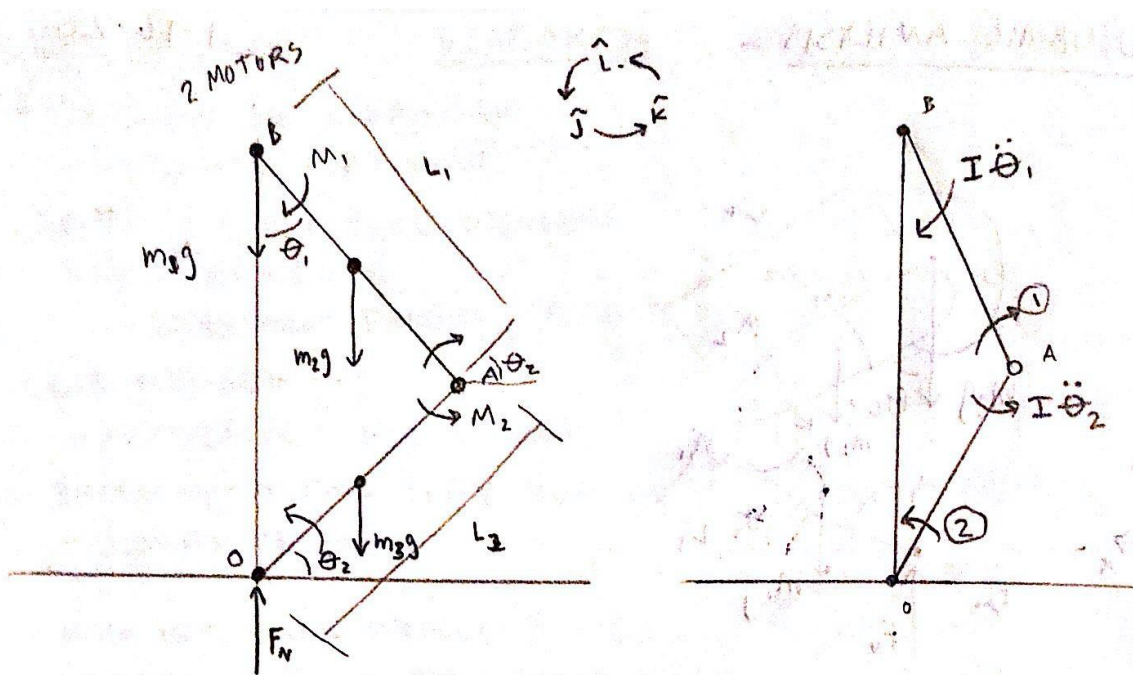 2 MOTORS
î
ĵ
k̂
B
M₁
L₁
θ₁
m₁g
m₂g
A
θ₂
M₂
m₃g
L₂
O
θ₂
F_N
B
I θ̈₁
①
A
I θ̈₂
②
O